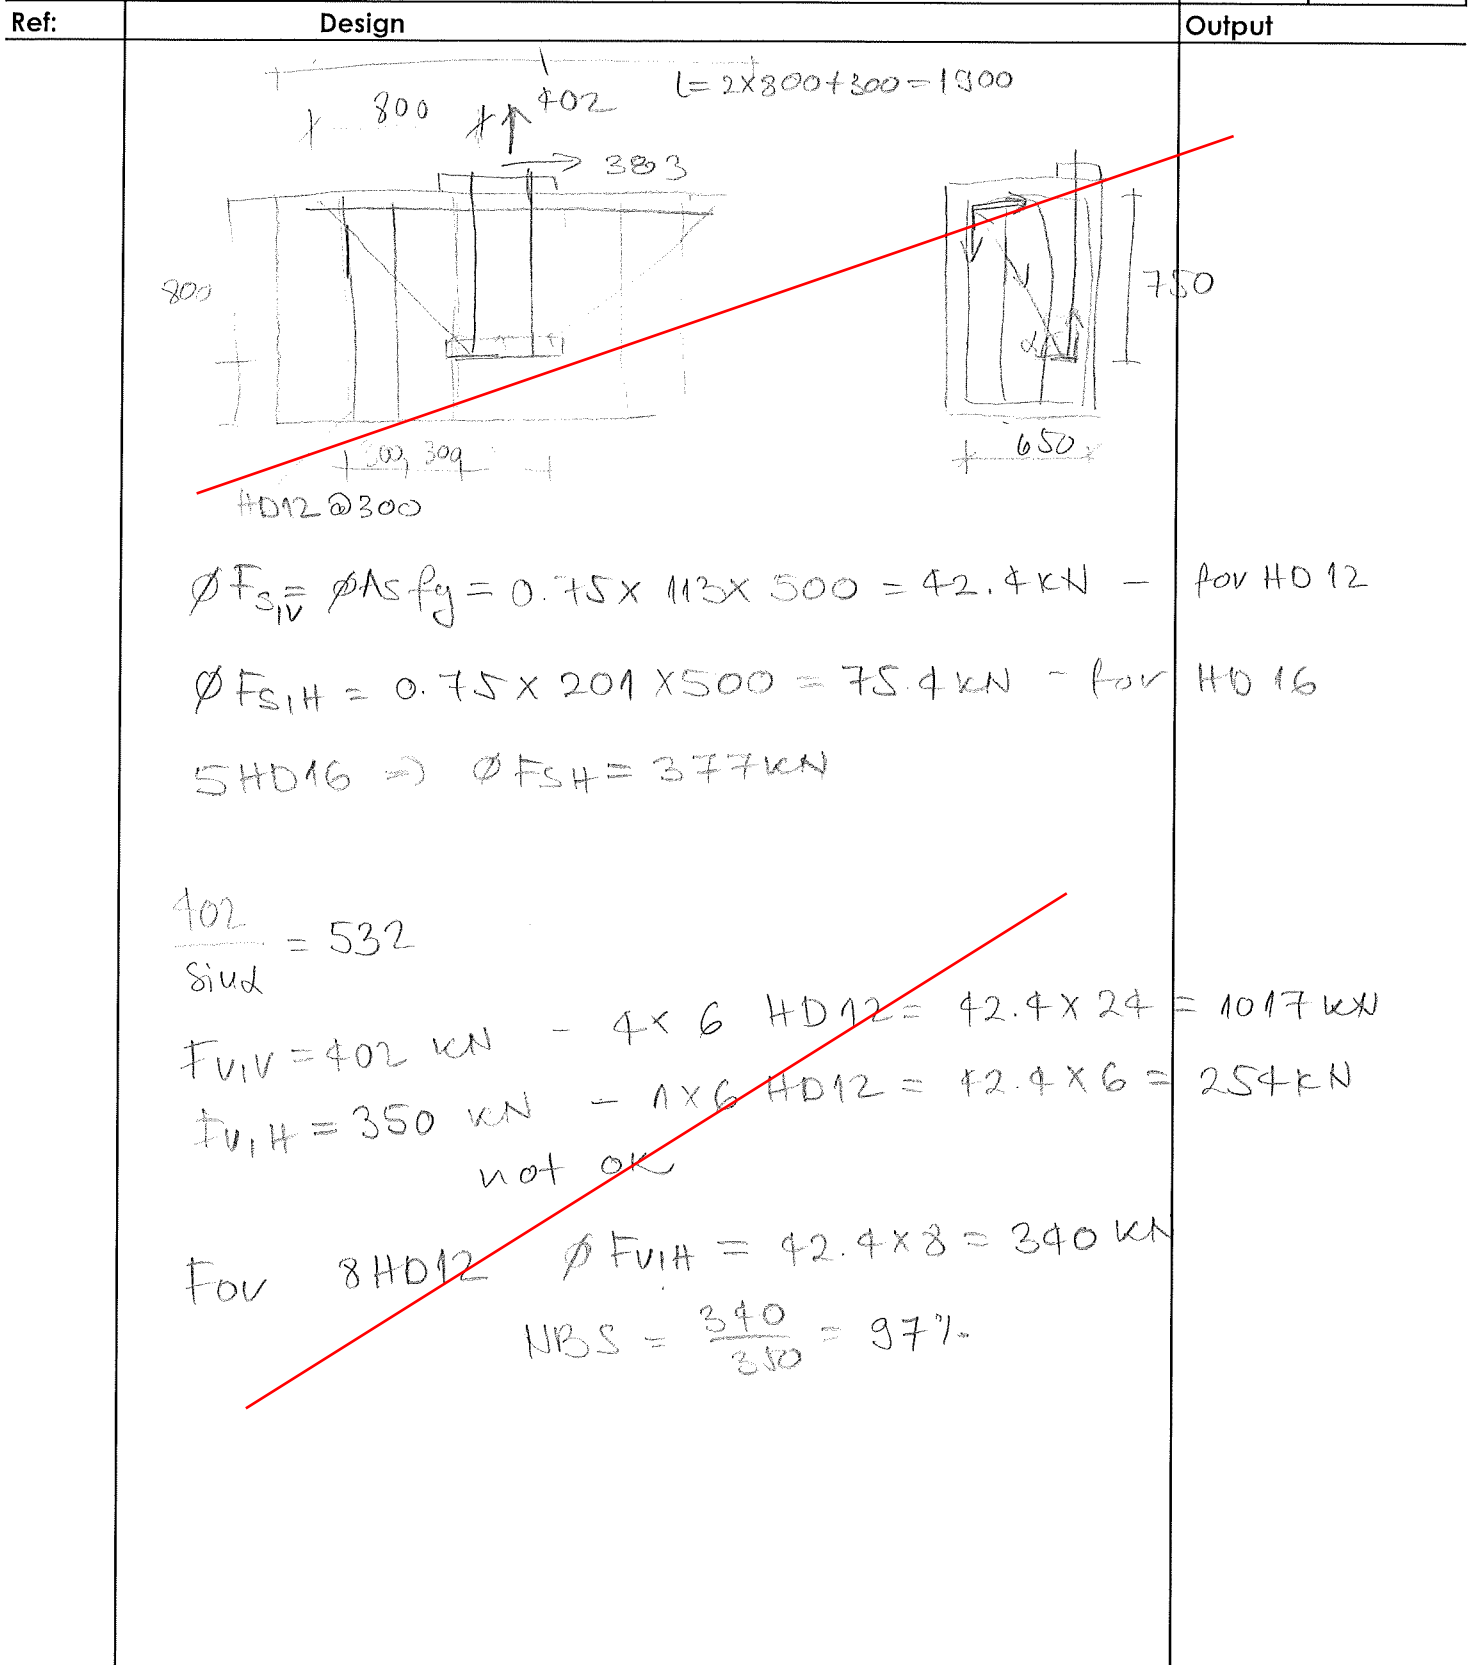 Ref: Design Output
L = 2×800+300 = 1900
800 402
383
800
750
650
300, 300
HD12 @300
ØFs,v = ØAsfy = 0.75 × 113 × 500 = 42.4 kN – for HD12
ØFs,H = 0.75 × 201 × 500 = 75.4 kN – for HD16
5HD16 => ØFsH = 377 kN
402
/ sinα = 532
Fv,v = 402 kN – 4×6 HD12 = 42.4 × 24 = 1017 kN
Fv,H = 350 kN – 1×6 HD12 = 42.4 × 6 = 254 kN
not ok
For 8HD12 ØFv,H = 42.4 × 8 = 340 kN
NBS = 340/350 = 97%